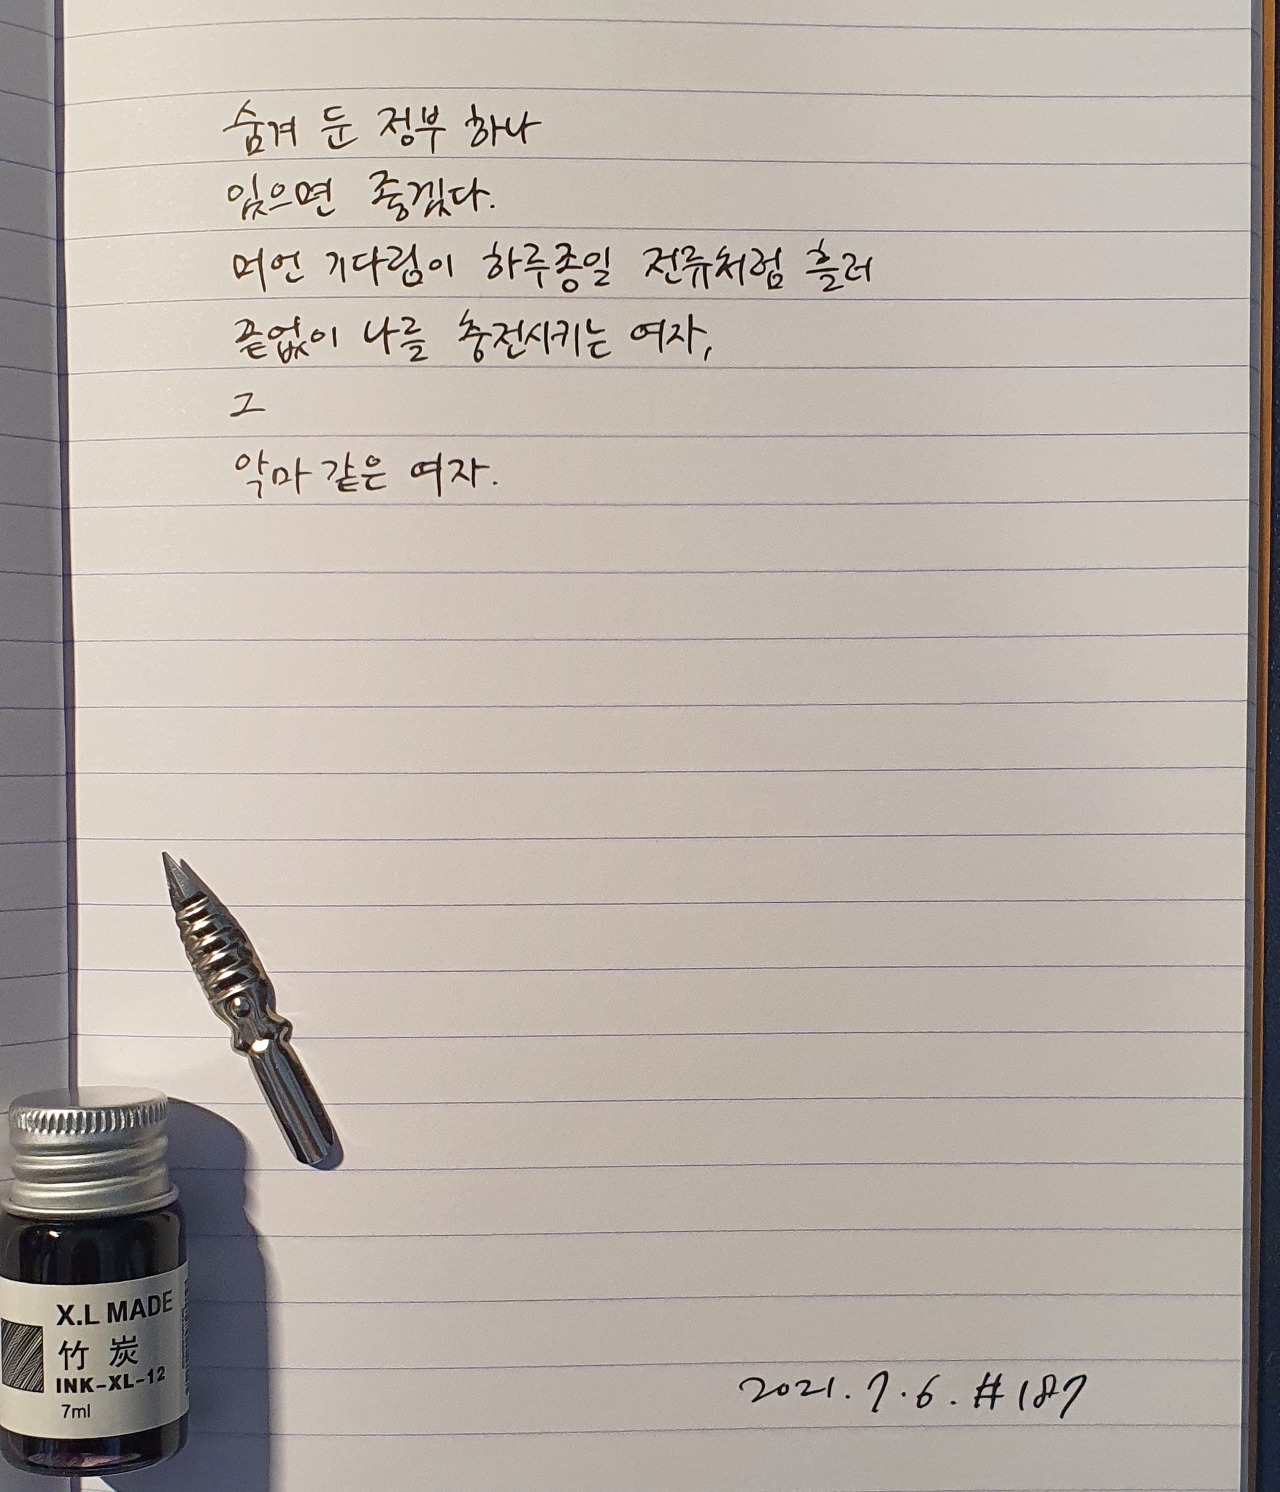 숨겨 둔 정부 하나
있으면 좋겠다.
머언 기다림이 하루종일 전류처럼 흘러
끝없이 나를 충전시키는 여자,
그
악마 같은 여자.
X.L MADE
竹 炭
INK-XL-12
7ml
2021. 7. 6. #187